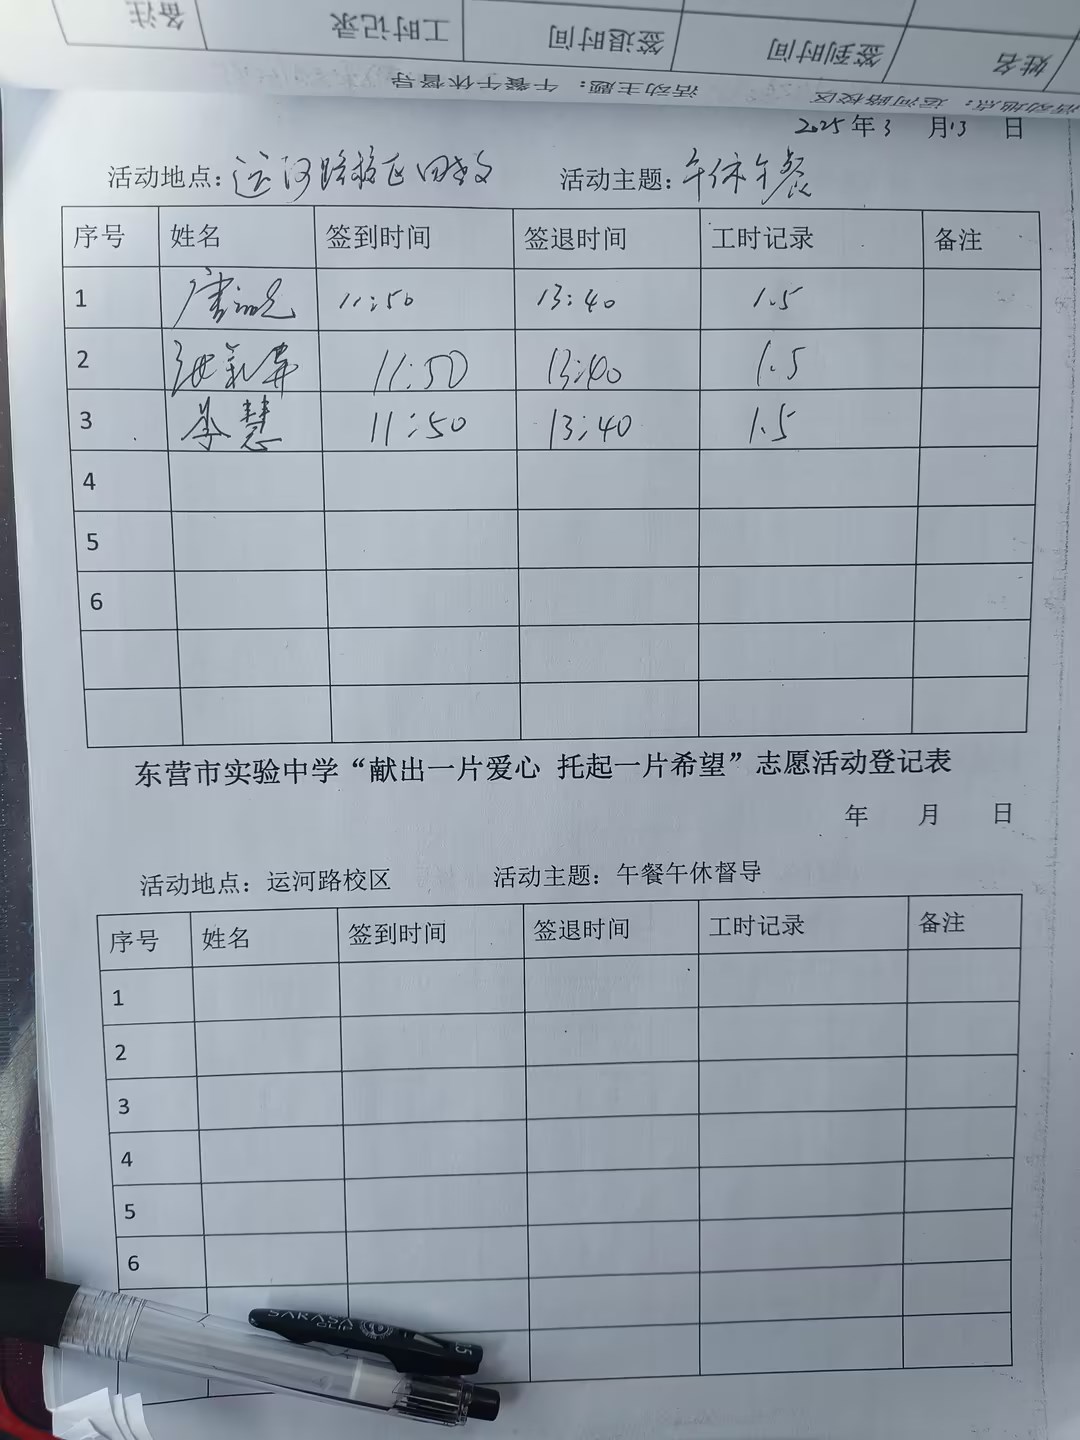 备注 工时记录 签退时间 签到时间 姓名
活动主题：午餐午休督导 活动地点：运河路校区
2025年3月13日
活动地点：运河路校区 活动主题：午休午餐
序号 姓名 签到时间 签退时间 工时记录 备注
1 11:50 13:40 1.5
2 11:50 13:40 1.5
3 慧 11:50 13:40 1.5
4
5
6
东营市实验中学“献出一片爱心 托起一片希望”志愿活动登记表
年 月 日
活动地点：运河路校区 活动主题：午餐午休督导
序号 姓名 签到时间 签退时间 工时记录 备注
1
2
3
4
5
6
SARASA